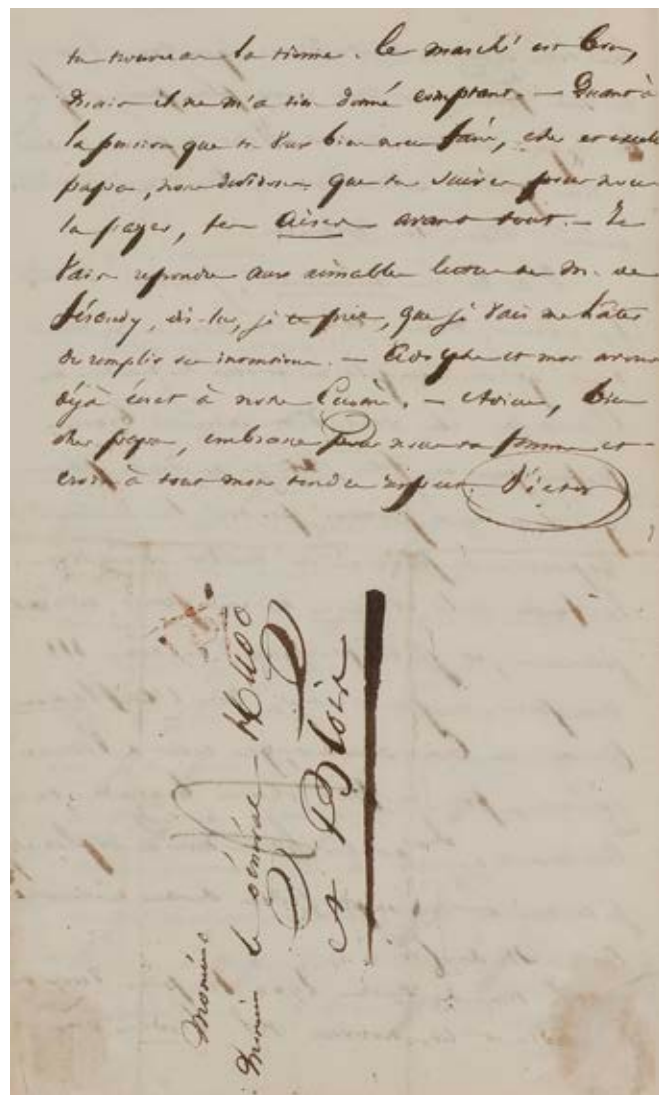 la tienne. Le marché est bon,
Mais il ne m'a rien donné comptant. — Quant à
la pension que tu veux bien nous faire, cher et excell
papa, nous désirons que tu suives pour nous
la payer, tes aises avant tout. — Je
vais répondre aux aimables lettres de M. de
Féraudy, dis-lui, je te prie, que je vais me hâter
de remplir ses intentions. — Adolphe et moi avons
déjà écrit à notre Cousin. — Adieu, bien
cher papa, embrasse pour nous ta femme et
crois à tout mon tendre respect. Victor
Monsieur
Monsieur le Général Hugo
A Blois